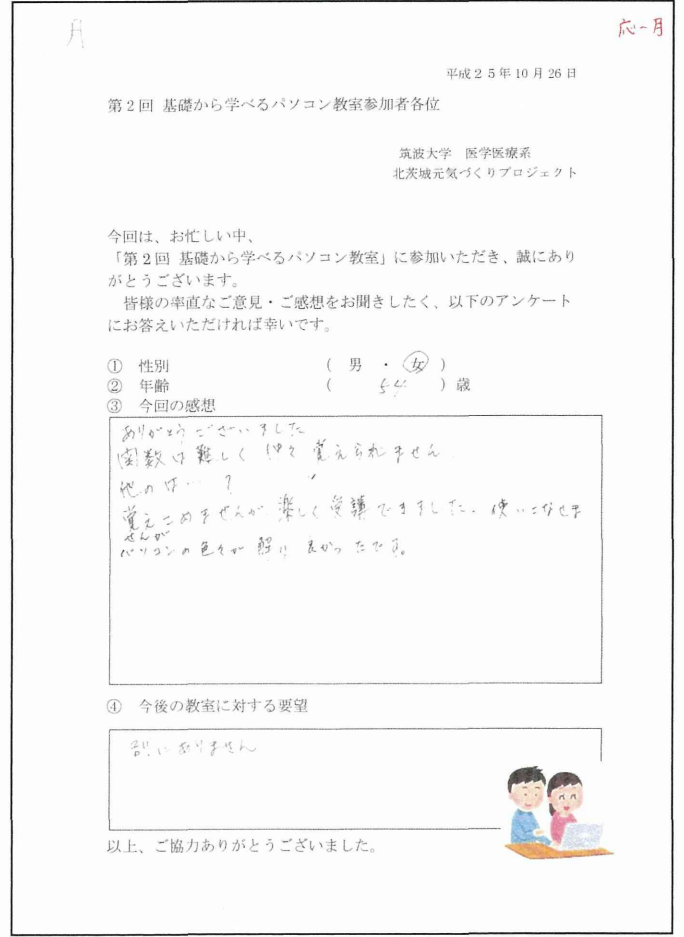 月
応-月
平成25年10月26日
第2回 基礎から学べるパソコン教室参加者各位
筑波大学 医学医療系
北茨城元気づくりプロジェクト
今回は、お忙しい中、
「第2回 基礎から学べるパソコン教室」に参加いただき、誠にあり
がとうございます。
皆様の率直なご意見・ご感想をお聞きしたく、以下のアンケート
にお答えいただければ幸いです。
① 性別 ( 男 ・ 女 )
② 年齢 ( 54 ) 歳
③ 今回の感想
ありがとうございました
関数は難しく 仲々 覚えられません
他のは…?
覚えこめませんが 楽しく受講できました、使いこなせま
せんが
パソコンの色々が 解り 良かったです。
④ 今後の教室に対する要望
別にありません
以上、ご協力ありがとうございました。